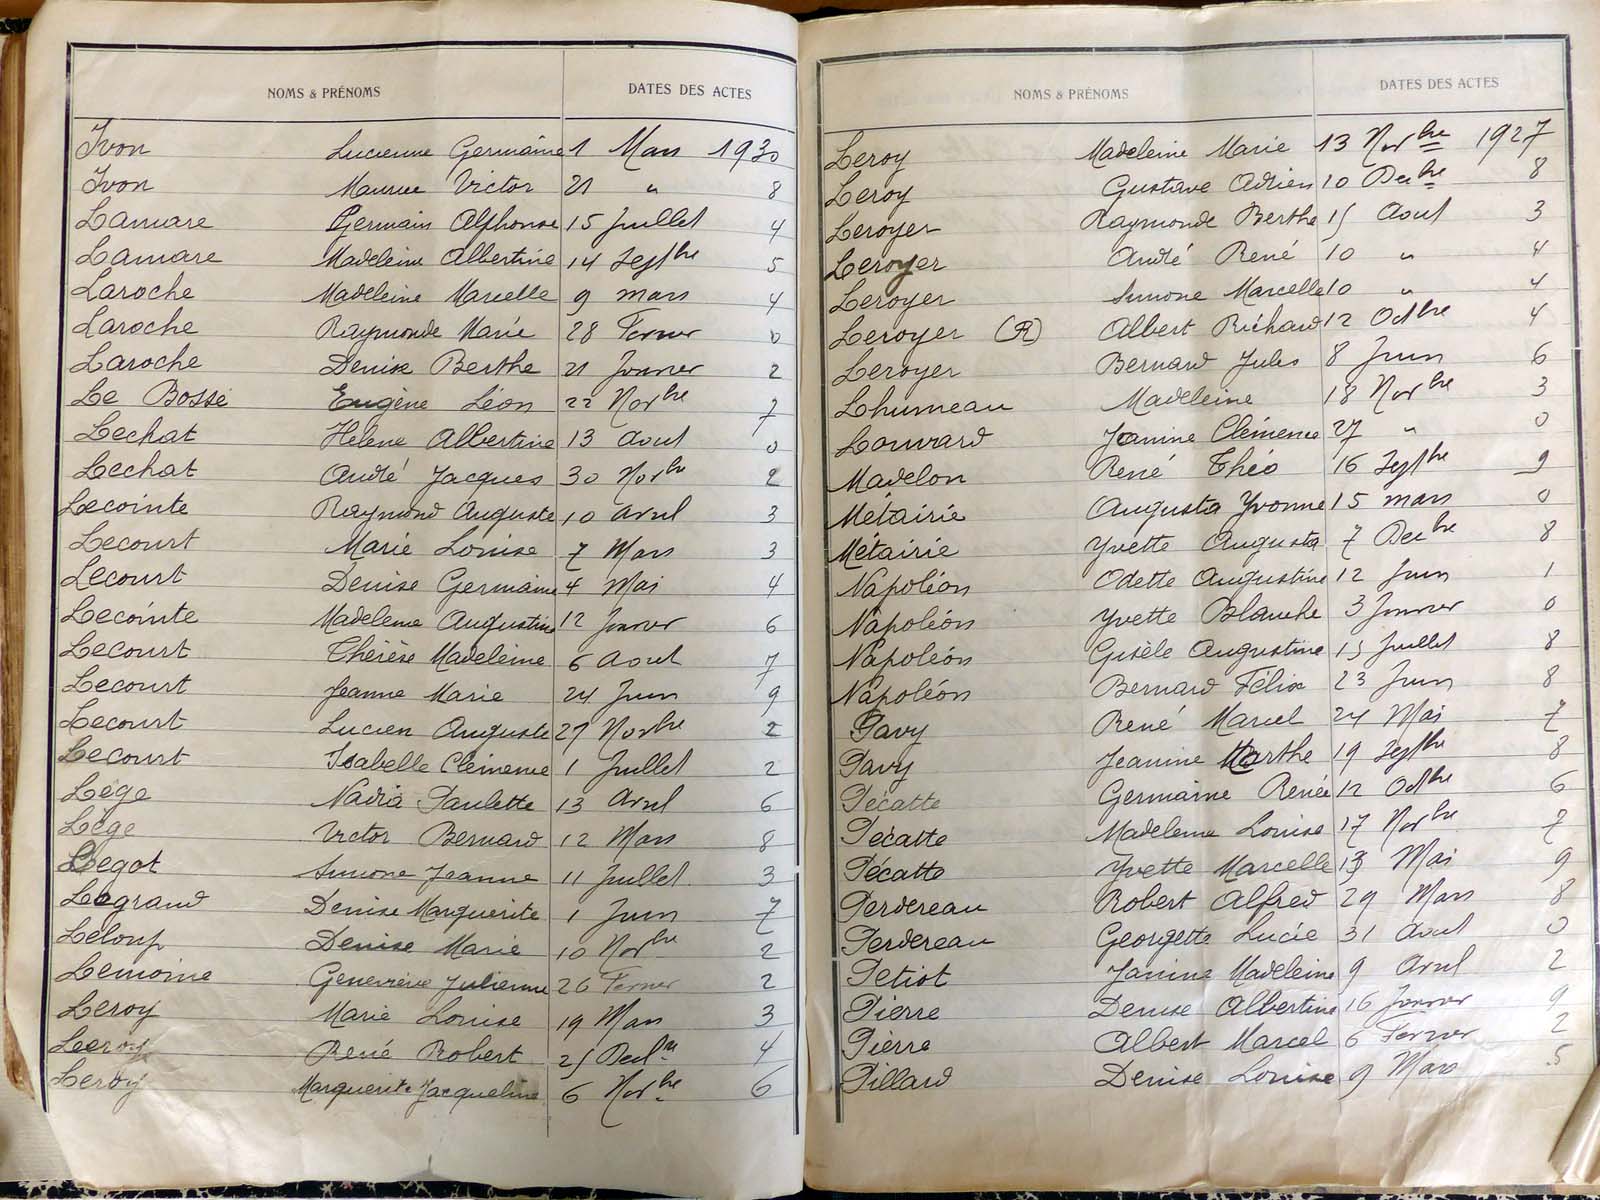 NOMS & PRÉNOMS DATES DES ACTES
Ivon Lucienne Germaine 1 Mars 1930
Ivon Maurice Victor 21 " 8
Lamare Germain Alphonse 15 Juillet 4
Lamare Madeleine Albertine 14 Septbre 5
Laroche Madeleine Marcelle 9 mars 4
Laroche Raymonde Marie 28 Fevrier 0
Laroche Denise Berthe 21 Janvier 2
Le Bossé Eugène Léon 22 Novbre 7
Lechat Helene Albertine 13 Aout 0
Lechat André Jacques 30 Novbre 2
Lecointe Raymond Auguste 10 Avril 3
Lecourt Marie Louise 7 Mars 3
Lecourt Denise Germaine 4 Mai 4
Lecointe Madeleine Augustine 12 Janvier 6
Lecourt Thérèse Madeleine 6 Aout 7
Lecourt Jeanne Marie 24 Juin 9
Lecourt Lucien Auguste 27 Novbre 2
Lecourt Isabelle Clémence 1 Juillet 2
Lége Nadia Paulette 13 Avril 6
Lége Victor Bernard 12 Mars 8
Legot Simone Jeanne 11 Juillet 3
Legrand Denise Marguerite 1 Juin 7
Leloup Denise Marie 10 Novbre 2
Lemoine Geneviève Julienne 26 Fevrier 2
Leroy Marie Louise 19 Mars 3
Leroy René Robert 25 Decbre 4
Leroy Marguerite Jacqueline 6 Novbre 6
NOMS & PRÉNOMS DATES DES ACTES
Leroy Madeleine Marie 13 Novbre 1927
Leroy Gustave Adrien 10 Decbre 8
Leroyer Raymonde Berthe 15 Aout 3
Leroyer André René 10 " 4
Leroyer Simone Marcelle 10 " 4
Leroyer (R) Albert Richard 12 Octbre 4
Leroyer Bernard Jules 8 Juin 6
Lhumeau Madeleine 18 Novbre 3
Louvard Janine Clémence 27 " 0
Madelon René Théo 16 Septbre 9
Métairie Augusta Yvonne 15 mars 0
Métairie Yvette Augusta 7 Decbre 8
Napoléon Odette Augustine 12 Juin 1
Napoléon Yvette Blanche 3 Janvier 0
Napoléon Gisèle Augustine 15 Juillet 8
Napoléon Bernard Félix 23 Juin 8
Pavy René Marcel 24 Mai 7
Pavy Jeanine Marthe 19 Septbre 8
Pécatte Germaine Renée 12 Octbre 6
Pécatte Madeleine Louise 17 Novbre 7
Pécatte Yvette Marcelle 13 Mai 9
Perdereau Robert Alfred 29 Mars 8
Perdereau Georgette Lucie 31 Aout 0
Petiot Janine Madeleine 9 Avril 2
Pierre Denise Albertine 16 Janvier 9
Pierre Albert Marcel 6 Fevrier 2
Pillard Denise Louise 9 Mars 5